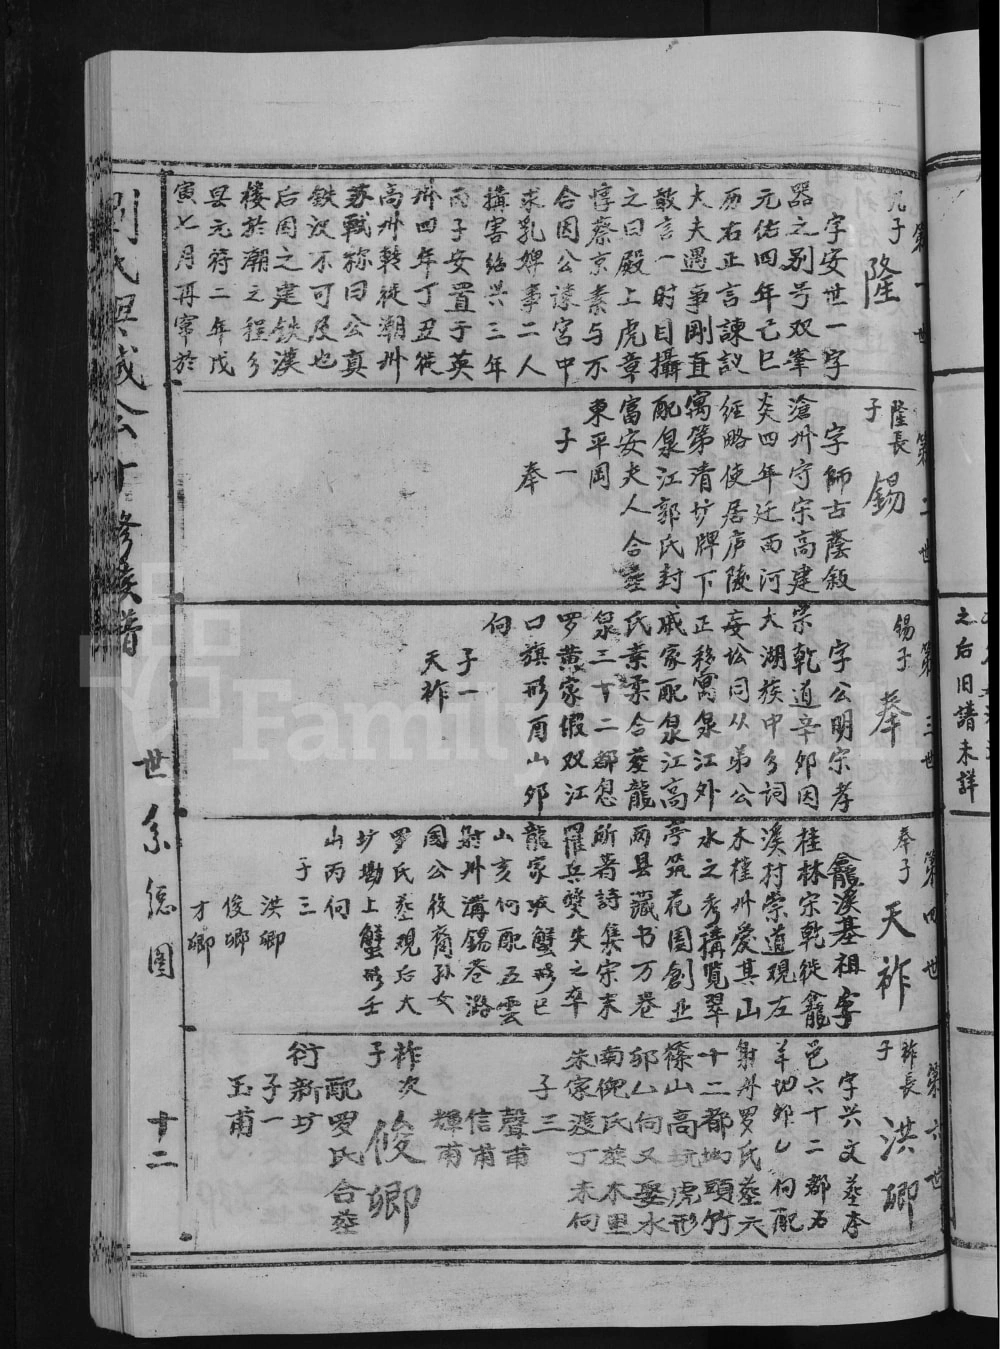 第一世
子
隆
字安世一字
器之别号双峯
元佑四年己巳
历右正言諫议
大夫遇事剛直
敢言一时目攝
之曰殿上虎章
惇蔡京素与不
合因公諫宮中
求乳婢事二人
搆害绍兴三年
丙子安置于英
州四年丁丑徙
高州轉徙潮州
苏軾称曰公真
铁汉不可及也
后因之建铁漢
楼於潮之程乡
县元符二年戊
寅七月再甯於
第二世
隆長
子
錫
字師古蔭叙
滄州守宋高建
炎四年迁西河
經略使居庐陵
寓第清坊牌下
配泉江郭氏封
富安夫人合塟
東平岡
子一
奉
第三世
锡子
奉
字公明宗孝
宗乾道辛卯因
大湖族中乡詞
妄讼同从弟公
正移寓泉江外
戚家配泉江高
氏業柔合塟龍
泉三十二都怱
罗黄家假双江
口旗形酉山卯
向
子一
天祚
第四世
奉子
天祚
龕溪基祖字
桂林宋乾徙龕
溪村崇道观左
木槿州爱其山
水之秀構览翠
亭筑花園創业
两县藏书万卷
所著詩集宋末
罹兵燹失之卒
龍家坡蟹形巳
山亥向配五雲
尉州溝錫巷潞
國公後裔孙女
罗氏塟观后大
圳勘上蟹形壬
山丙向
子三
洪卿
俊卿
才卿
第六世
祚長
子
洪卿
字兴文塟本
邑六十二都石
羊切卯乙向配
射州罗氏塟六
十二都坳頭竹
篠山高坑虎形
卯山向又娶水
南倪氏塟木里
朱家渡丁未向
子三
聲甫
信甫
輝甫
祚次
子
俊卿
配罗氏合塟
衍新坊
子一
玉甫
世系總圖
十二
之后旧譜未詳